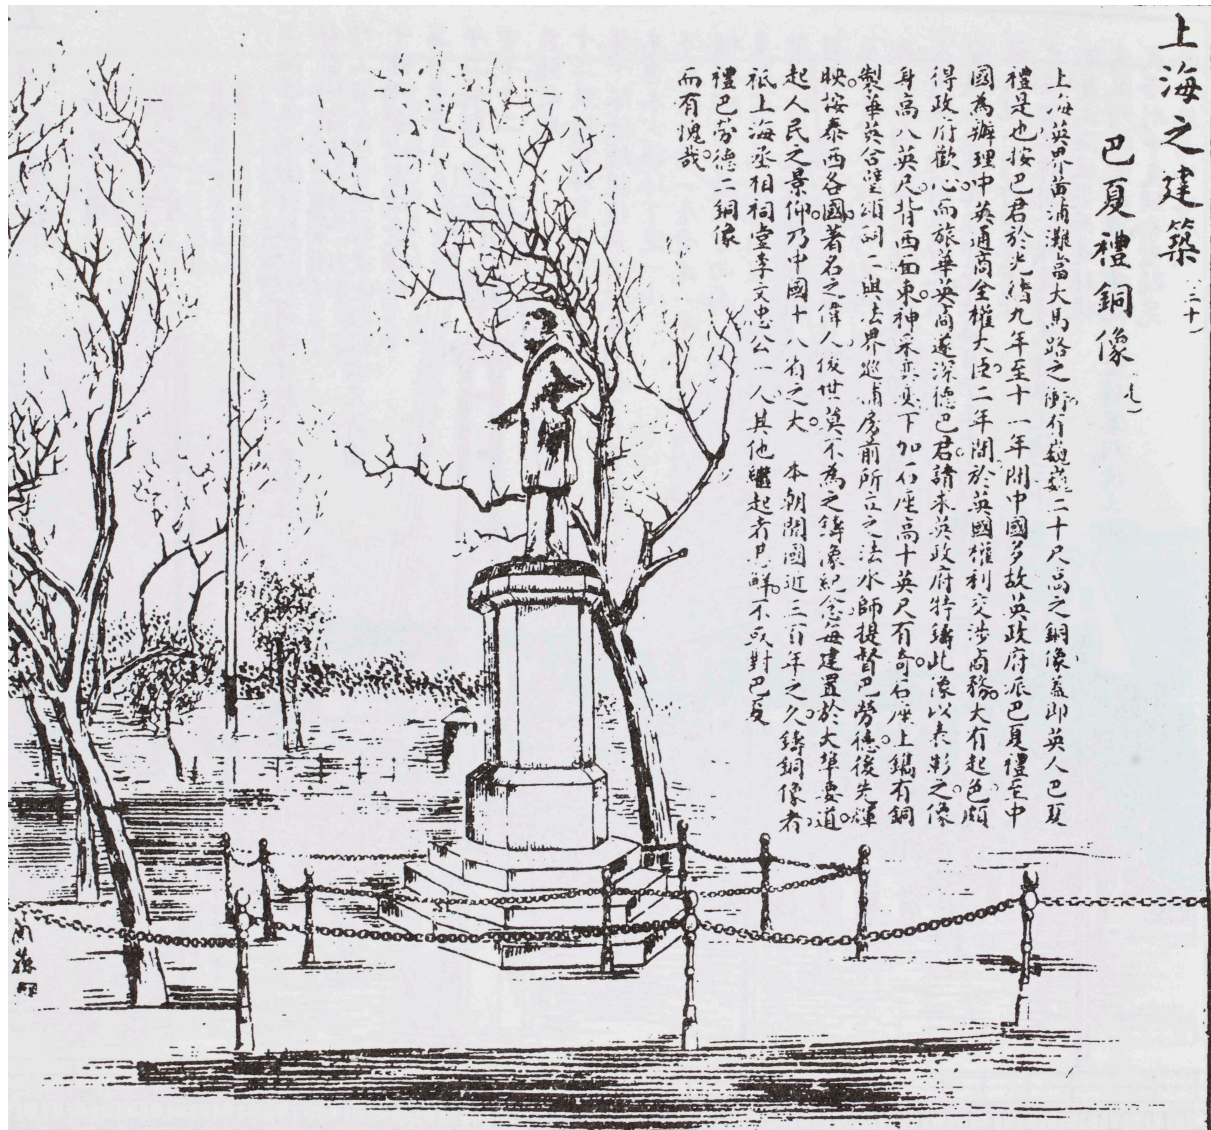 上海之建築 (二十)
巴夏禮銅像
上海英界黃浦灘當大馬路之衝有巍巍二十尺高之銅像蓋即英人巴夏
禮是也按巴君於光緒九年至十一年間中國多故英政府派巴夏禮至中
國為辦理中英通商全權大臣。二年間於英國權利交涉商務。大有起色。頗
得政府歡心。而旅華英商遂深德巴君。請求英政府特鑄此像以表彰之。像
身高八英尺。背西面東。神采奕奕下加石座高十英尺有奇。石座上鐫有銅
製華英合璧頌詞二與法界巡捕房前所立之法水師提督巴勞德。後先輝
映。按泰西各國。著名之偉人後世莫不為之鑄像紀念每建置於大埠要道。
起人民之景仰。乃中國十八省之大。 本朝開國近三百年之久。鑄銅像者。
祇上海丞相祠堂李文忠公一人其他繼起者甚鮮。不亦對巴夏
禮巴勞德二銅像
而有愧哉。